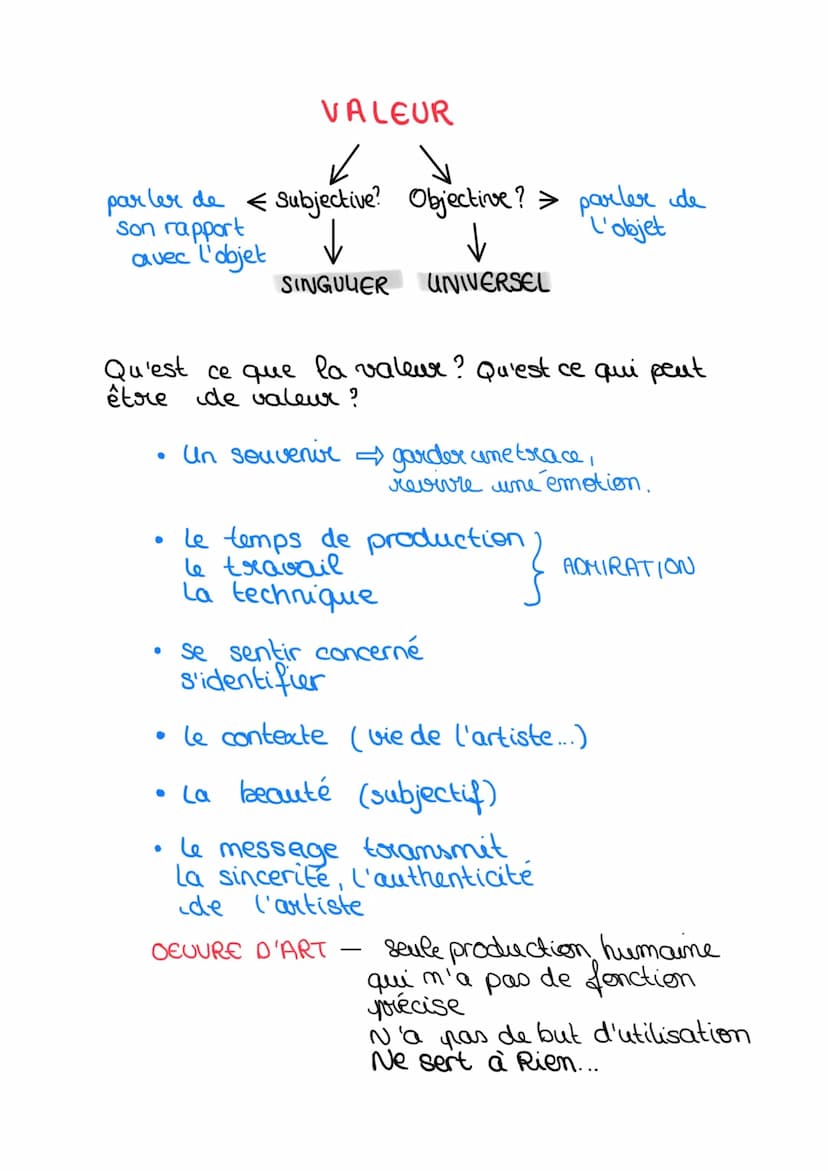 VALEUR
parler de < Subjective? Objective? > parler de
son rapport l'objet
avec l'objet
SINGULIER UNIVERSEL
Qu'est ce que la valeur? Qu'est ce qui peut
être de valeur?
• Un souvenir ⇒ garder une trace,
revivre une émotion.
• Le temps de production
Le travail } ADMIRATION
La technique
• Se sentir concerné
s'identifier
• Le contexte (vie de l'artiste...)
• La beauté (subjectif)
• Le message transmit
La sincerité, l'authenticité
de l'artiste
OEUVRE D'ART — Seule production humaine
qui n'a pas de fonction
précise
N'a pas de but d'utilisation
Ne sert à Rien...